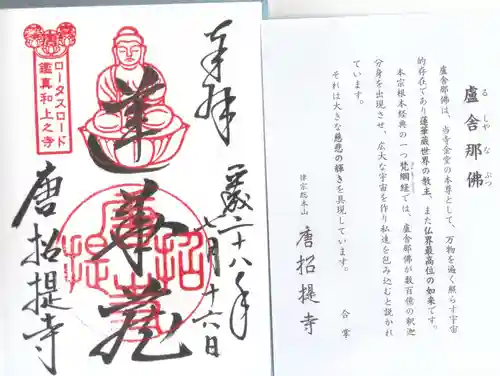 奉拝
平成二十八年
七月十六日
蓮華蔵
ロータスロード
鑑真和上之寺
唐招提寺
盧舎那佛
る しゃ な ぶつ
盧舎那佛は、当寺金堂の本尊として、万物を遍く照らす宇宙
的存在であり蓮華蔵世界の教主、また仏界最高位の如来です。
本宗根本経典の一つ梵網経では、盧舎那佛が数百億の釈迦
分身を出現させ、広大な宇宙を作り私達を包み込むと説かれ
ています。
それは大きな慈悲の輝きを具現しています。
合掌
律宗総本山
唐招提寺